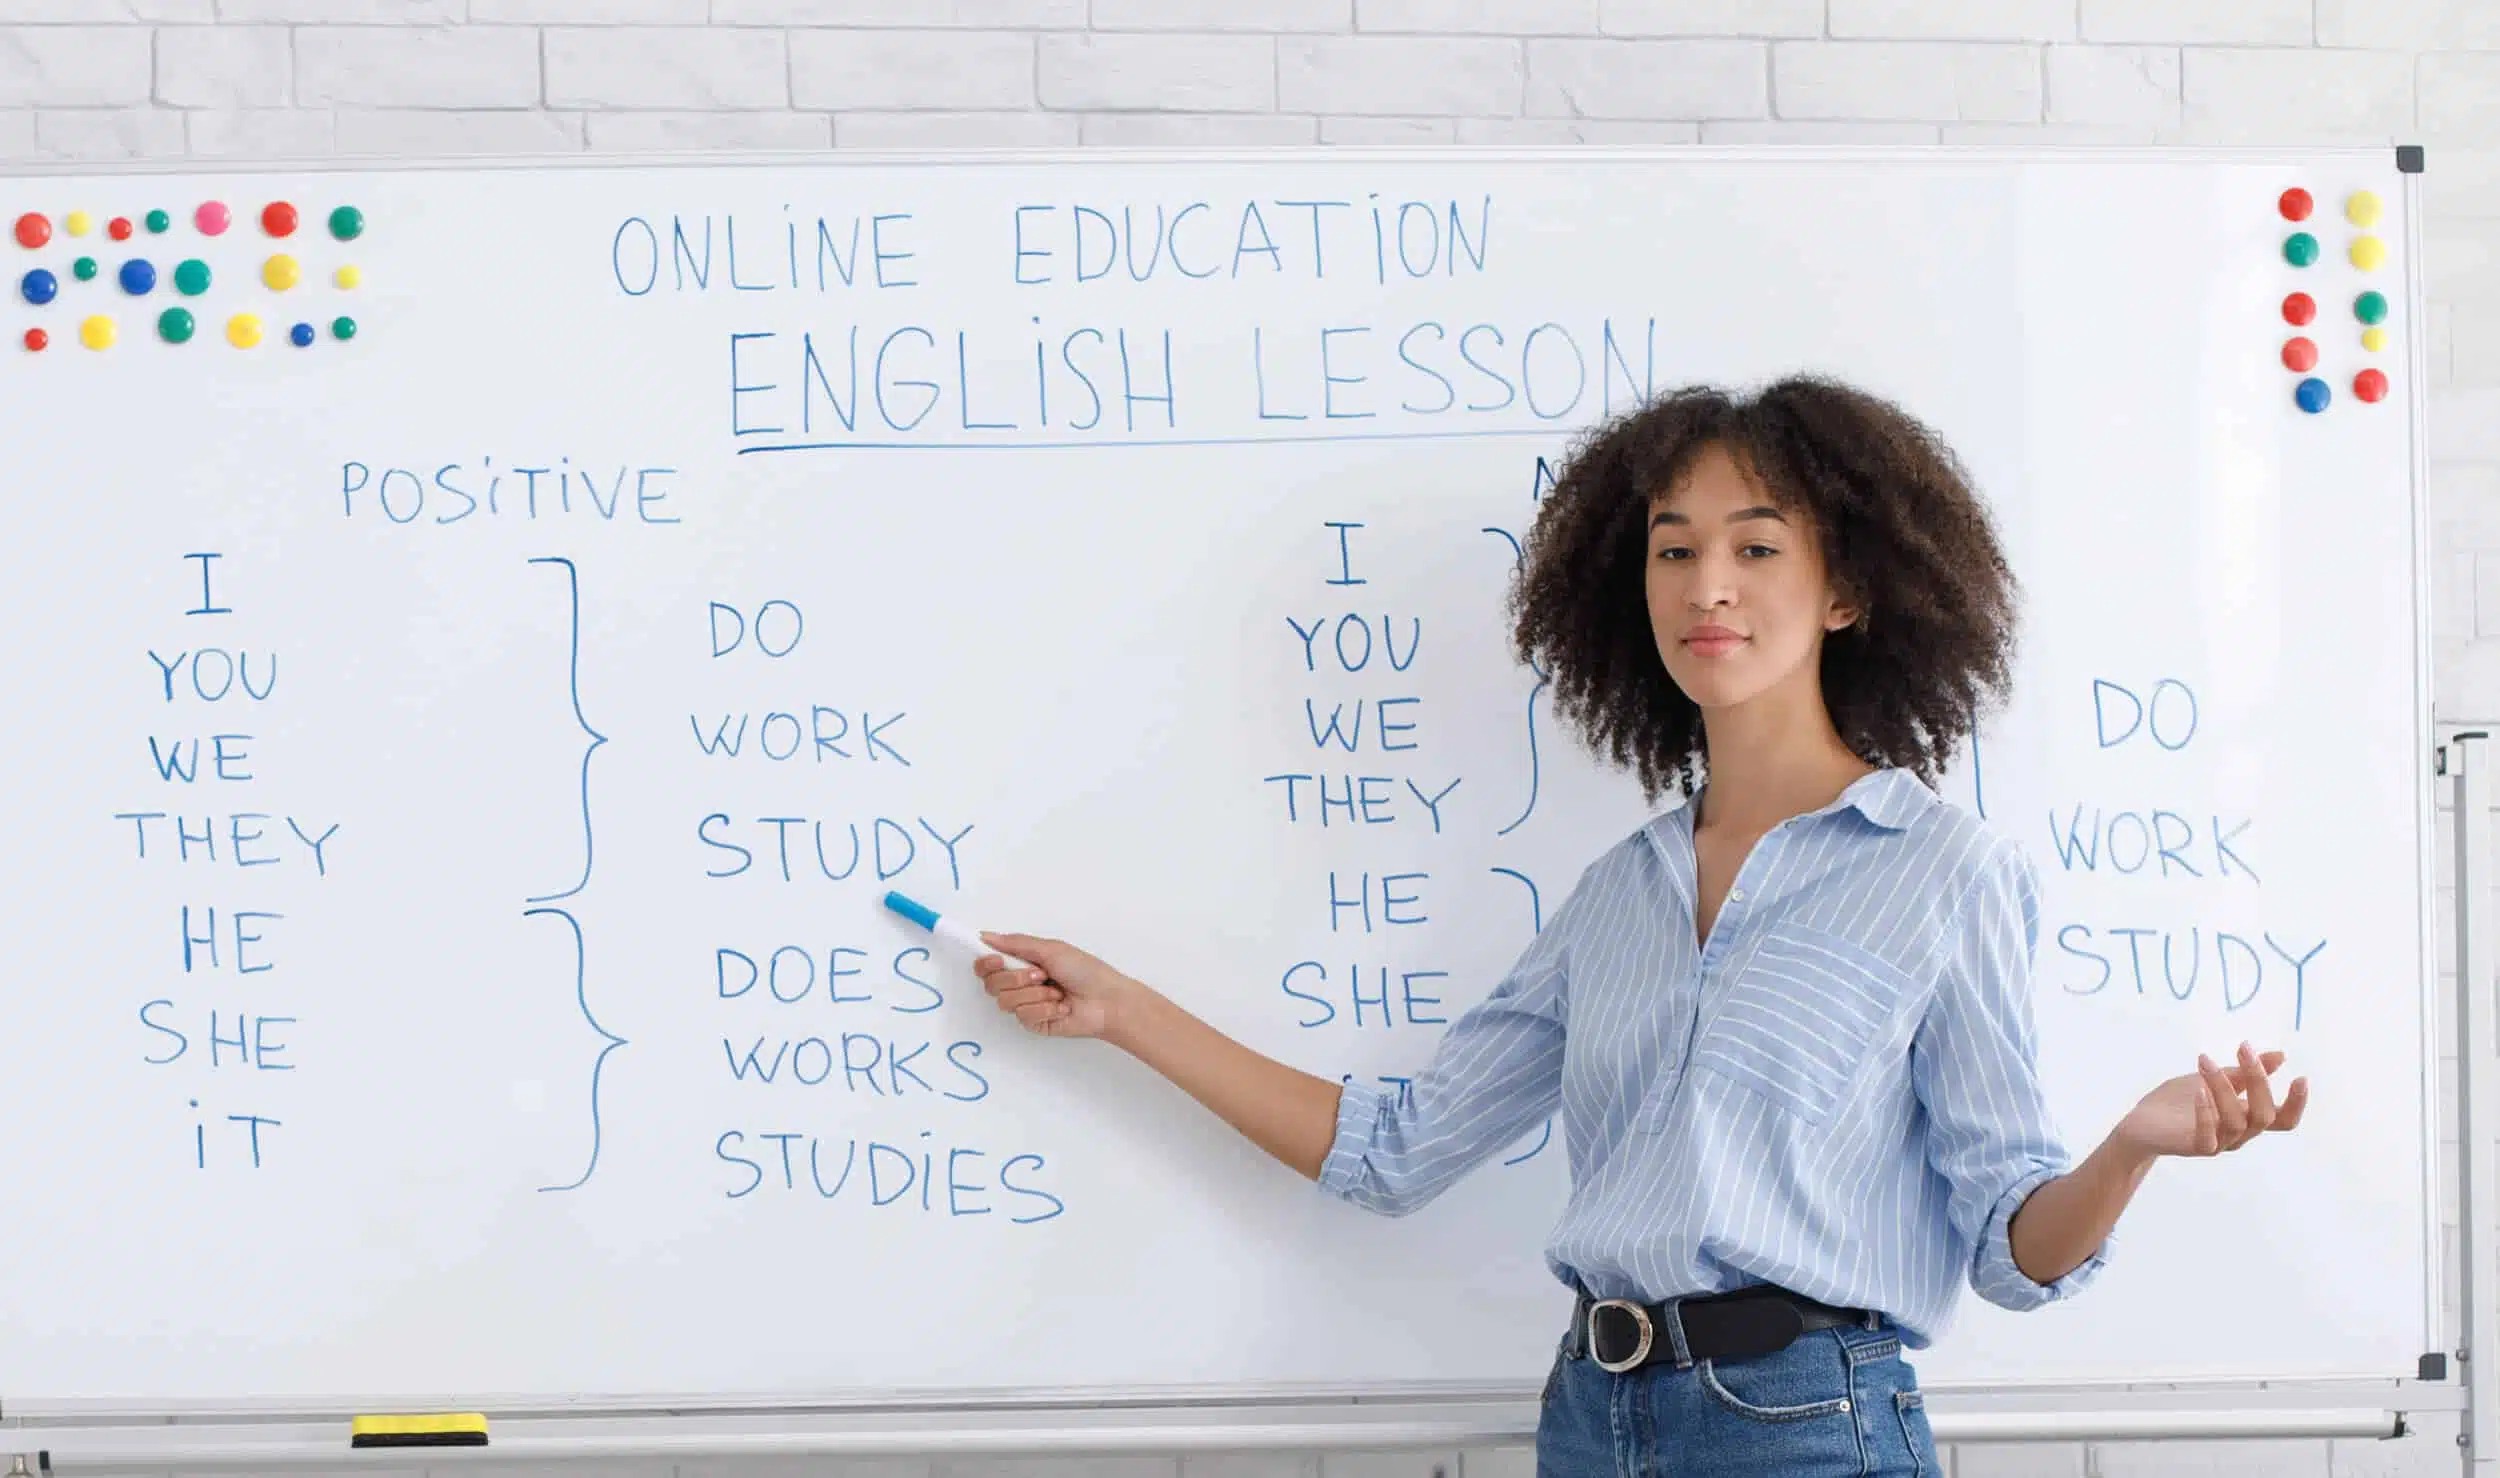 ONLINE EDUCATION
ENGLISH LESSON
POSITIVE
I
YOU
WE
THEY
HE
SHE
IT
DO
WORK
STUDY
DOES
WORKS
STUDIES
I
YOU
WE
THEY
HE
SHE
DO
WORK
STUDY